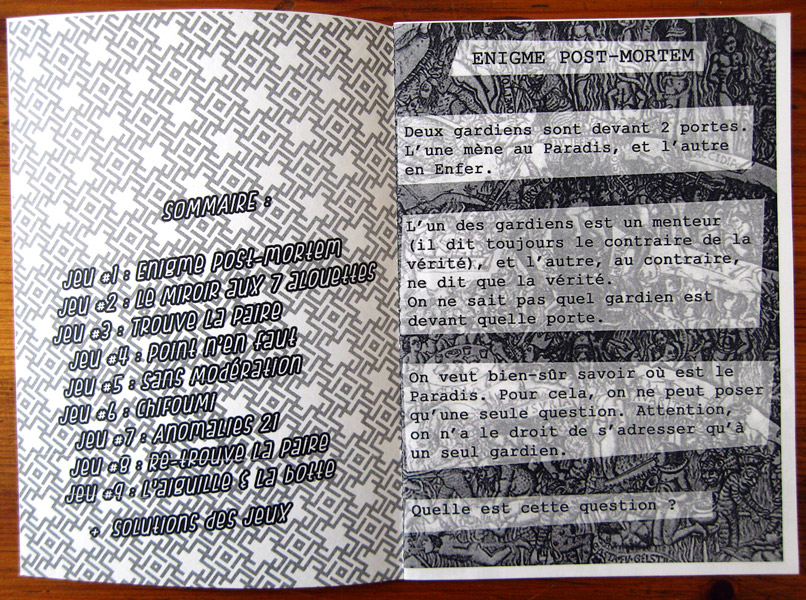 SOMMAIRE :
Jeu #1 : Enigme post-mortem
Jeu #2 : Le miroir aux 7 alouettes
Jeu #3 : Trouve la paire
Jeu #4 : Point n'en faut
Jeu #5 : Sans modération
Jeu #6 : Chifoumi
Jeu #7 : Anomalies 21
Jeu #8 : Re-trouve la paire
Jeu #9 : L'aiguille & la botte
+ solutions des jeux
ENIGME POST-MORTEM
Deux gardiens sont devant 2 portes.
L'une mène au Paradis, et l'autre
en Enfer.
L'un des gardiens est un menteur
(il dit toujours le contraire de la
vérité), et l'autre, au contraire,
ne dit que la vérité.
On ne sait pas quel gardien est
devant quelle porte.
On veut bien-sûr savoir où est le
Paradis. Pour cela, on ne peut poser
qu'une seule question. Attention,
on n'a le droit de s'adresser qu'à
un seul gardien.
Quelle est cette question ?